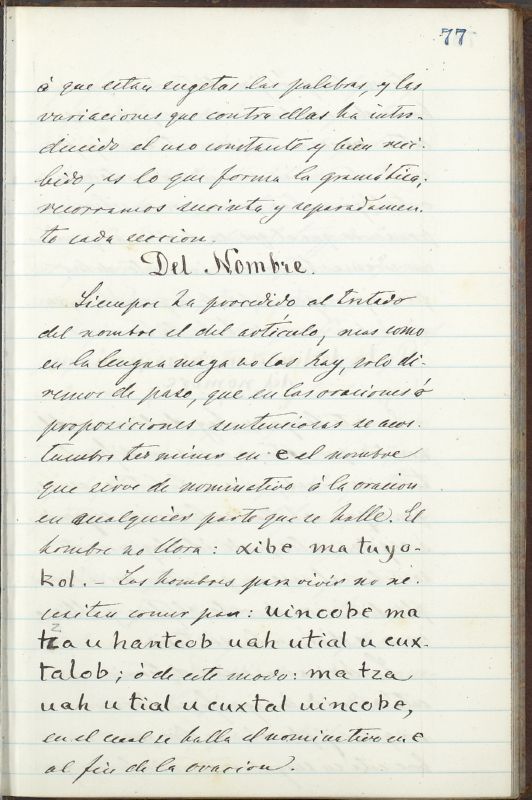 77
á que estan sugetas las palabras, y las
variaciones que contra ellas ha intro-
ducido el uso constante y bien reci-
bido, es lo que forma la gramática;
recorramos sucinta y separadamen-
te cada seccion.
Del Nombre.
Siempre ha precedido al tratado
del nombre el del artículo, mas como
en la lengua maya no los hay, solo di-
remos de paso, que en las oraciones ó
proposiciones sentenciosas se acos-
tumbra terminar en e el nombre
que sirve de nominativo á la oracion
en cualquier parte que se halle. El
hombre no llora: xibe ma tu yo-
kol. - Los hombres para vivir no ne-
cesitan comer pan: uincobe ma
tza u hanteob uah utial u cux-
talob; ó de este modo: ma tza
uah u tial u cuxtal uincobe,
en el cual se halla el nominativo en e
al fin de la oracion.